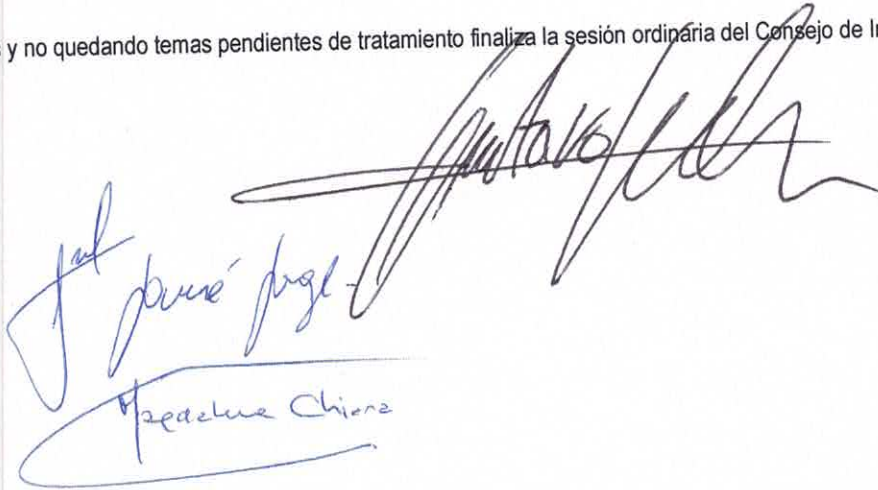 y no quedando temas pendientes de tratamiento finaliza la sesión ordinaria del Consejo de
Gustavo
Jorge
Magdalena Chiara